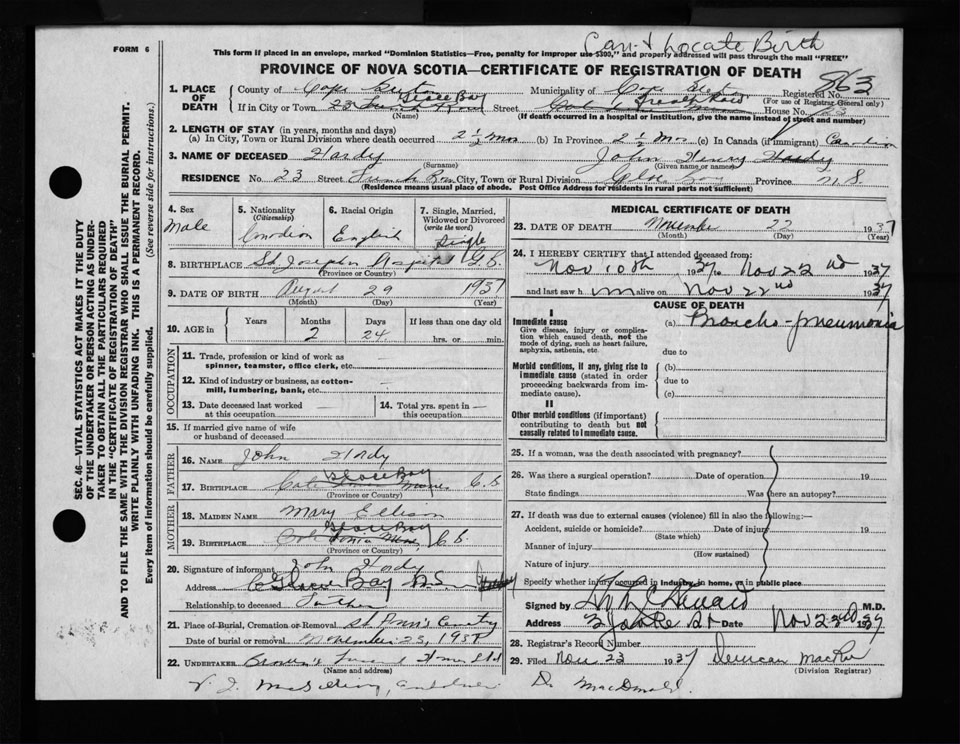 FORM 6
Can't Locate Birth
This form if placed in an envelope, marked "Dominion Statistics—Free, penalty for improper use $300," and properly addressed will pass through the mail "FREE"
PROVINCE OF NOVA SCOTIA—CERTIFICATE OF REGISTRATION OF DEATH
863
1. PLACE OF DEATH
County of Cape Breton Municipality of Cape Breton Registered No.
(For use of Registrar General only)
If in City or Town Glace Bay 23 French Road Street House No. 23
(Name) (If death occurred in a hospital or institution, give the name instead of street and number)
2. LENGTH OF STAY (in years, months and days)
(a) In City, Town or Rural Division where death occurred 2½ mos (b) In Province 2½ mos (c) In Canada (if immigrant) Canadian
3. NAME OF DECEASED Hardy John Henry Hardy
(Surname) (Given name or names)
RESIDENCE No. 23 Street French Road City, Town or Rural Division Glace Bay Province N.S.
(Residence means usual place of abode. Post Office Address for residents in rural parts not sufficient)
4. Sex Male
5. Nationality (Citizenship) Canadian
6. Racial Origin English
7. Single, Married, Widowed or Divorced (write the word) Single
8. BIRTHPLACE St Josephs Hospital G.B.
(Province or Country)
9. DATE OF BIRTH August 29 1937
(Month) (Day) (Year)
10. AGE in Years Months 2 Days 24 If less than one day old hrs. or min.
OCCUPATION
11. Trade, profession or kind of work as spinner, teamster, office clerk, etc.
12. Kind of industry or business, as cotton-mill, lumbering, bank, etc.
13. Date deceased last worked at this occupation
14. Total yrs. spent in this occupation
15. If married give name of wife or husband of deceased
FATHER
16. NAME John Hardy
17. BIRTHPLACE Glace Bay C.B.
(Province or Country)
MOTHER
18. MAIDEN NAME Mary Ellison
19. BIRTHPLACE Glace Bay C.B.
(Province or Country)
20. Signature of informant John Hardy
Address Glace Bay N.S.
Relationship to deceased Father
21. Place of Burial, Cremation or Removal St Ann's Cemetery
Date of burial or removal November 23, 1937
22. UNDERTAKER Brown's Funeral Home Ltd
(Name and address)
MEDICAL CERTIFICATE OF DEATH
23. DATE OF DEATH November 22 1937
(Month) (Day) (Year)
24. I HEREBY CERTIFY that I attended deceased from:
Nov 10th 1937 to Nov 22nd 1937
and last saw him alive on Nov 22nd 1937
CAUSE OF DEATH
I
Immediate cause (a) Broncho-pneumonia
Give disease, injury or complication which caused death, not the mode of dying, such as heart failure, asphyxia, asthenia, etc.
due to
Morbid conditions, if any, giving rise to immediate cause (stated in order proceeding backwards from immediate cause)
(b)
due to
(c)
II
Other morbid conditions (if important) contributing to death but not causally related to immediate cause.
25. If a woman, was the death associated with pregnancy?
26. Was there a surgical operation? Date of operation 19
State findings Was there an autopsy?
27. If death was due to external causes (violence) fill in also the following:—
Accident, suicide or homicide? Date of injury 19
(State which)
Manner of injury
(How sustained)
Nature of injury
Specify whether injury occurred in Industry, in home, or in public place
Signed by M.D.
Address Date Nov 22nd 1937
28. Registrar's Record Number
29. Filed Nov 23 1937 Duncan
(Division Registrar)
Dr. MacDonald.
SEC. 46—VITAL STATISTICS ACT MAKES IT THE DUTY
OF THE UNDERTAKER OR PERSON ACTING AS UNDER-
TAKER TO OBTAIN ALL THE PARTICULARS REQUIRED
IN THE "CERTIFICATE OF REGISTRATION OF DEATH"
AND TO FILE THE SAME WITH THE DIVISION REGISTRAR WHO SHALL ISSUE THE BURIAL PERMIT.
WRITE PLAINLY WITH UNFADING INK. THIS IS A PERMANENT RECORD.
Every item of information should be carefully supplied. (See reverse side for instructions.)